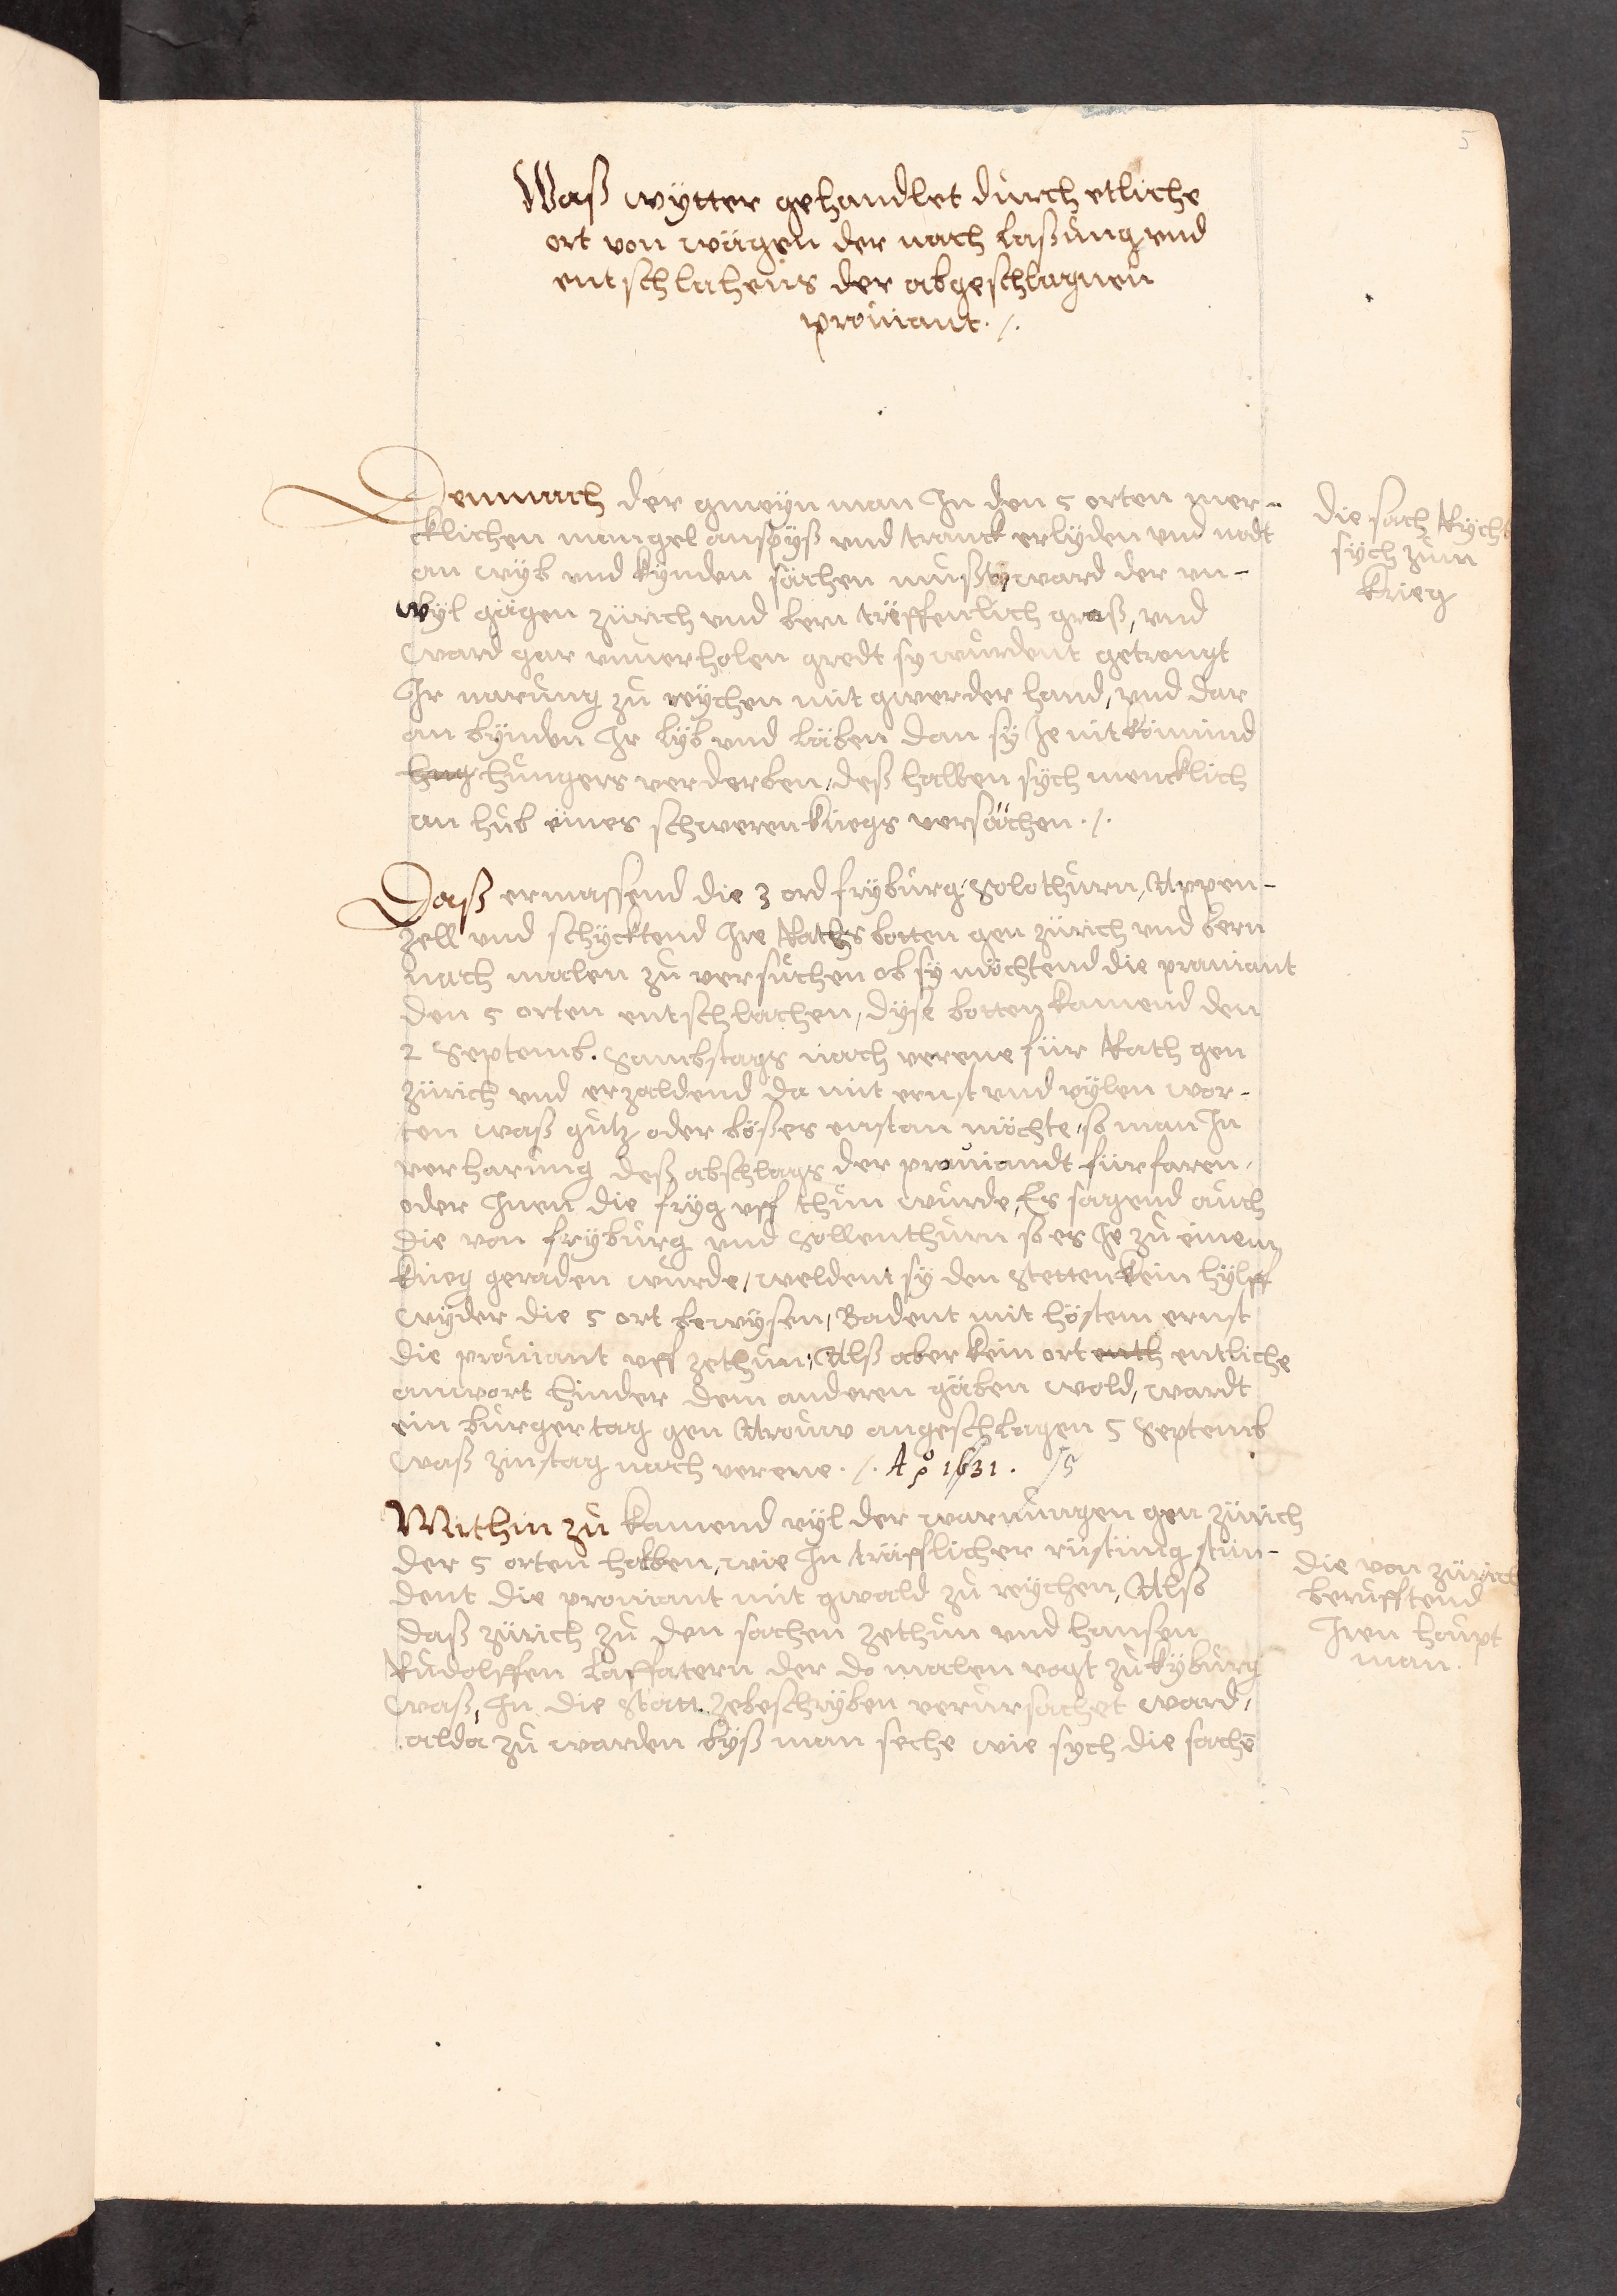 5
Waß wÿtter gehandlet durch etliche
ort von wägen der nach laßung vnd
entschlahens der abgeschlagnen
profiant ·/.
Demnach der gmeÿn man In den 5 orten mer-
cklichen mangel an spÿß vnd tranck erlÿden vnd nodt
an wÿb vnd kÿnden sächen mußt, ward der vn-
wÿl gägen zürich vnd bern träffenlich groß, vnd
ward gar vnuerholen gredt sy wurdent getrengt
Ir narung zu reÿchen mit gwerder hand, vnd dar
an bÿnden Ir lÿb vnd läben dan sÿ Je nit kömind
hug hungers verderben, deß halben sÿch mencklich
an hub eines schweren kriegs versächen ·/.
die sach Rÿcht
sÿch zum
krieg
Daß ermassend die 3 ord frÿburg, Solothurn, Appen-
zell vnd schÿcktend Ire Rathsbotten gen zürich vnd bern
nach malen zu versuchen ob sÿ möchtend die proniant
den 5 orten entschlachen, dÿse botten kamend den
2 Septemb. Sambstags nach verene für Rath gen
zürich vnd erzaldend da mit ernst vnd vÿlen wor-
ten waß gutz oder bößes enstan möchte, so man In
verharung deß abschlags der prouiandt fürfaren,
oder Inen die frÿg vff thun wurde, Es sagend auch
die von frÿburg vnd Sollenthurn so es Je zu einem
krieg geraden wurde, weldent sÿ den Stetten kein hÿlff
wÿder die 5 ort bewÿsen, Badent mit höstem ernst
die prouiant vff zethun, Alß aber kein ort enth entliche
antwort hinder dem anderen gäben wold, wardt
ein burgertag gen Arouw angeschlagen 5 Septemb
waß zinstag nach verene ·/. Aº 1631. /5
Mithin zu kamend vÿl der warnungen gen zürich
der 5 orten halben, wie In träfflicher rüstung stün-
dent die proniant mit gwald zu reÿchen, Also
daß zürich zu den sachen zethun vnd hansen
Rudolffen Laffatern der do malen vogt zu kÿburg
waß, In die Statt zebeschrÿben verursachet ward,
alda zu warden bÿß man seche wie sÿch die sachē
die von zürich
berufftend
Iren haupt
man.